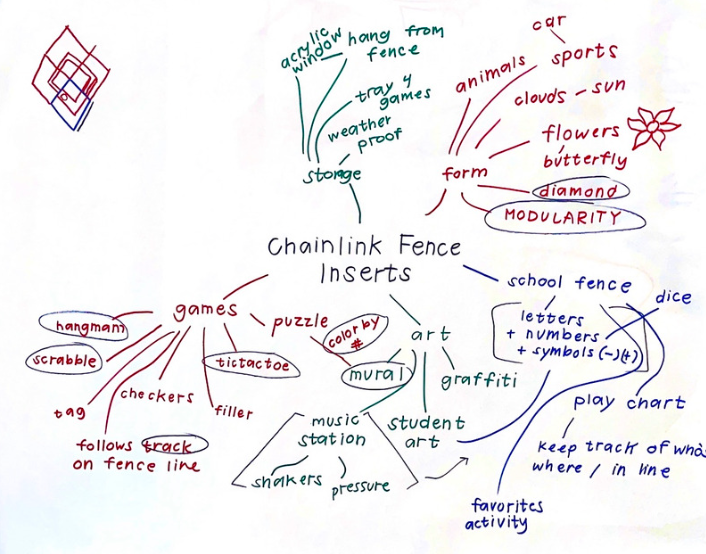 acrylic
window
hang from
fence
tray 4
games
weather
proof
storage
car
sports
animals
clouds - sun
flowers
butterfly
form
diamond
MODULARITY
Chainlink Fence
Inserts
school fence
dice
letters
+ numbers
+ symbols (-)(+)
play chart
keep track of who's
where / in line
favorites
activity
games
hangmam
scrabble
tag
checkers
follows track
on fence line
filler
tictactoe
puzzle
color by
#
art
mural
graffiti
music
station
shakers
pressure
student
art